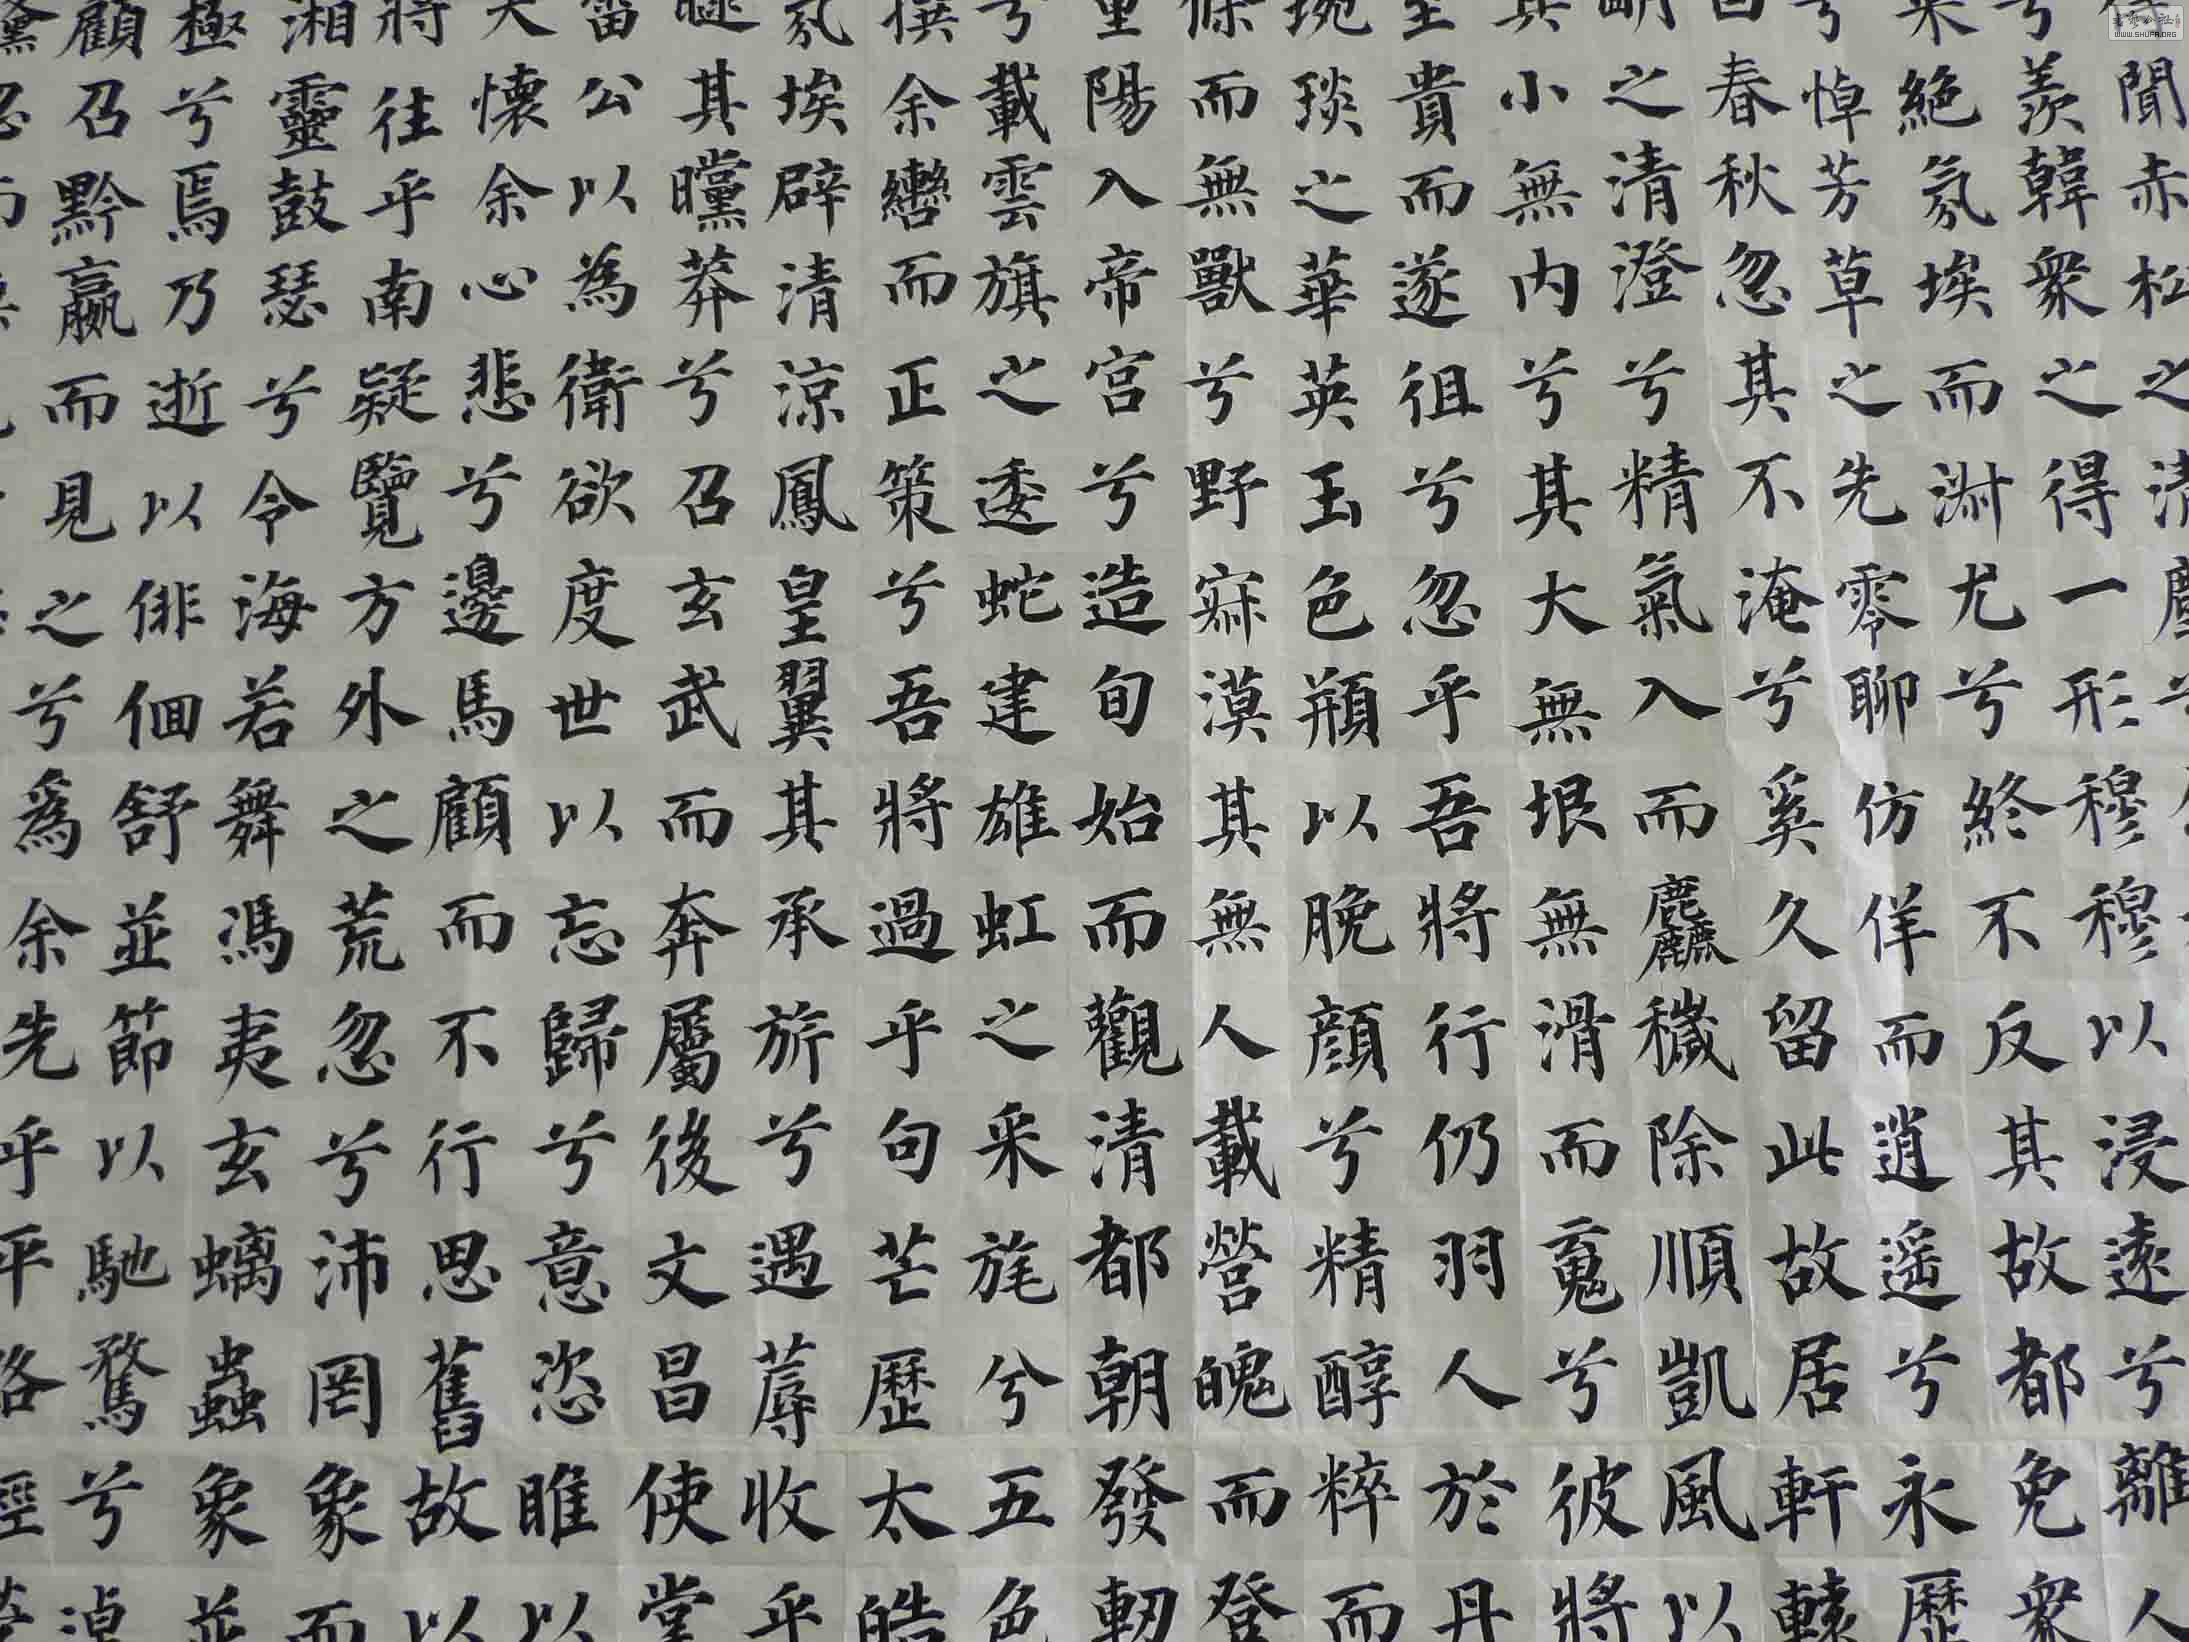 聞赤松之清塵兮
羨韓眾之得一形穆穆以浸遠兮離人
兮絶氛埃而淑尤兮終不反其故都免眾
兮悼芳草之先零聊仿佯而逍遥兮永歷
春秋忽其不淹兮奚久留此故居軒轅
之清澄兮精氣入而麤穢除順凱風以
小無内兮其大無垠無滑而䰟兮彼將
至貴而遂徂兮忽乎吾將行仍羽人於丹
琬琰之華英玉色頩以脕顔兮精醇粹而
而無獸兮野寂漠其無人載營魄而登
重陽入帝宫兮造旬始而觀清都朝發軔
兮載雲旗之逶蛇建雄虹之采旄兮五色
撰余轡而正策兮吾將過乎句芒歷太皓
氛埃辟清涼鳳皇翼其承旂兮遇蓐收乎
曖其曭莽兮召玄武而奔屬後文昌使掌
雷公以為衛欲度世以忘歸兮意恣睢以
懷余心悲兮邊馬顧而不行思舊故以
將往乎南疑覽方外之荒忽兮沛罔象而
湘靈鼓瑟兮令海若舞馮夷玄螭蟲象並
極兮焉乃逝以俳佪舒並節以馳騖兮逴
顧召黔嬴而見之兮為余先乎平路
書法公社
WWW.SHUFA.ORG